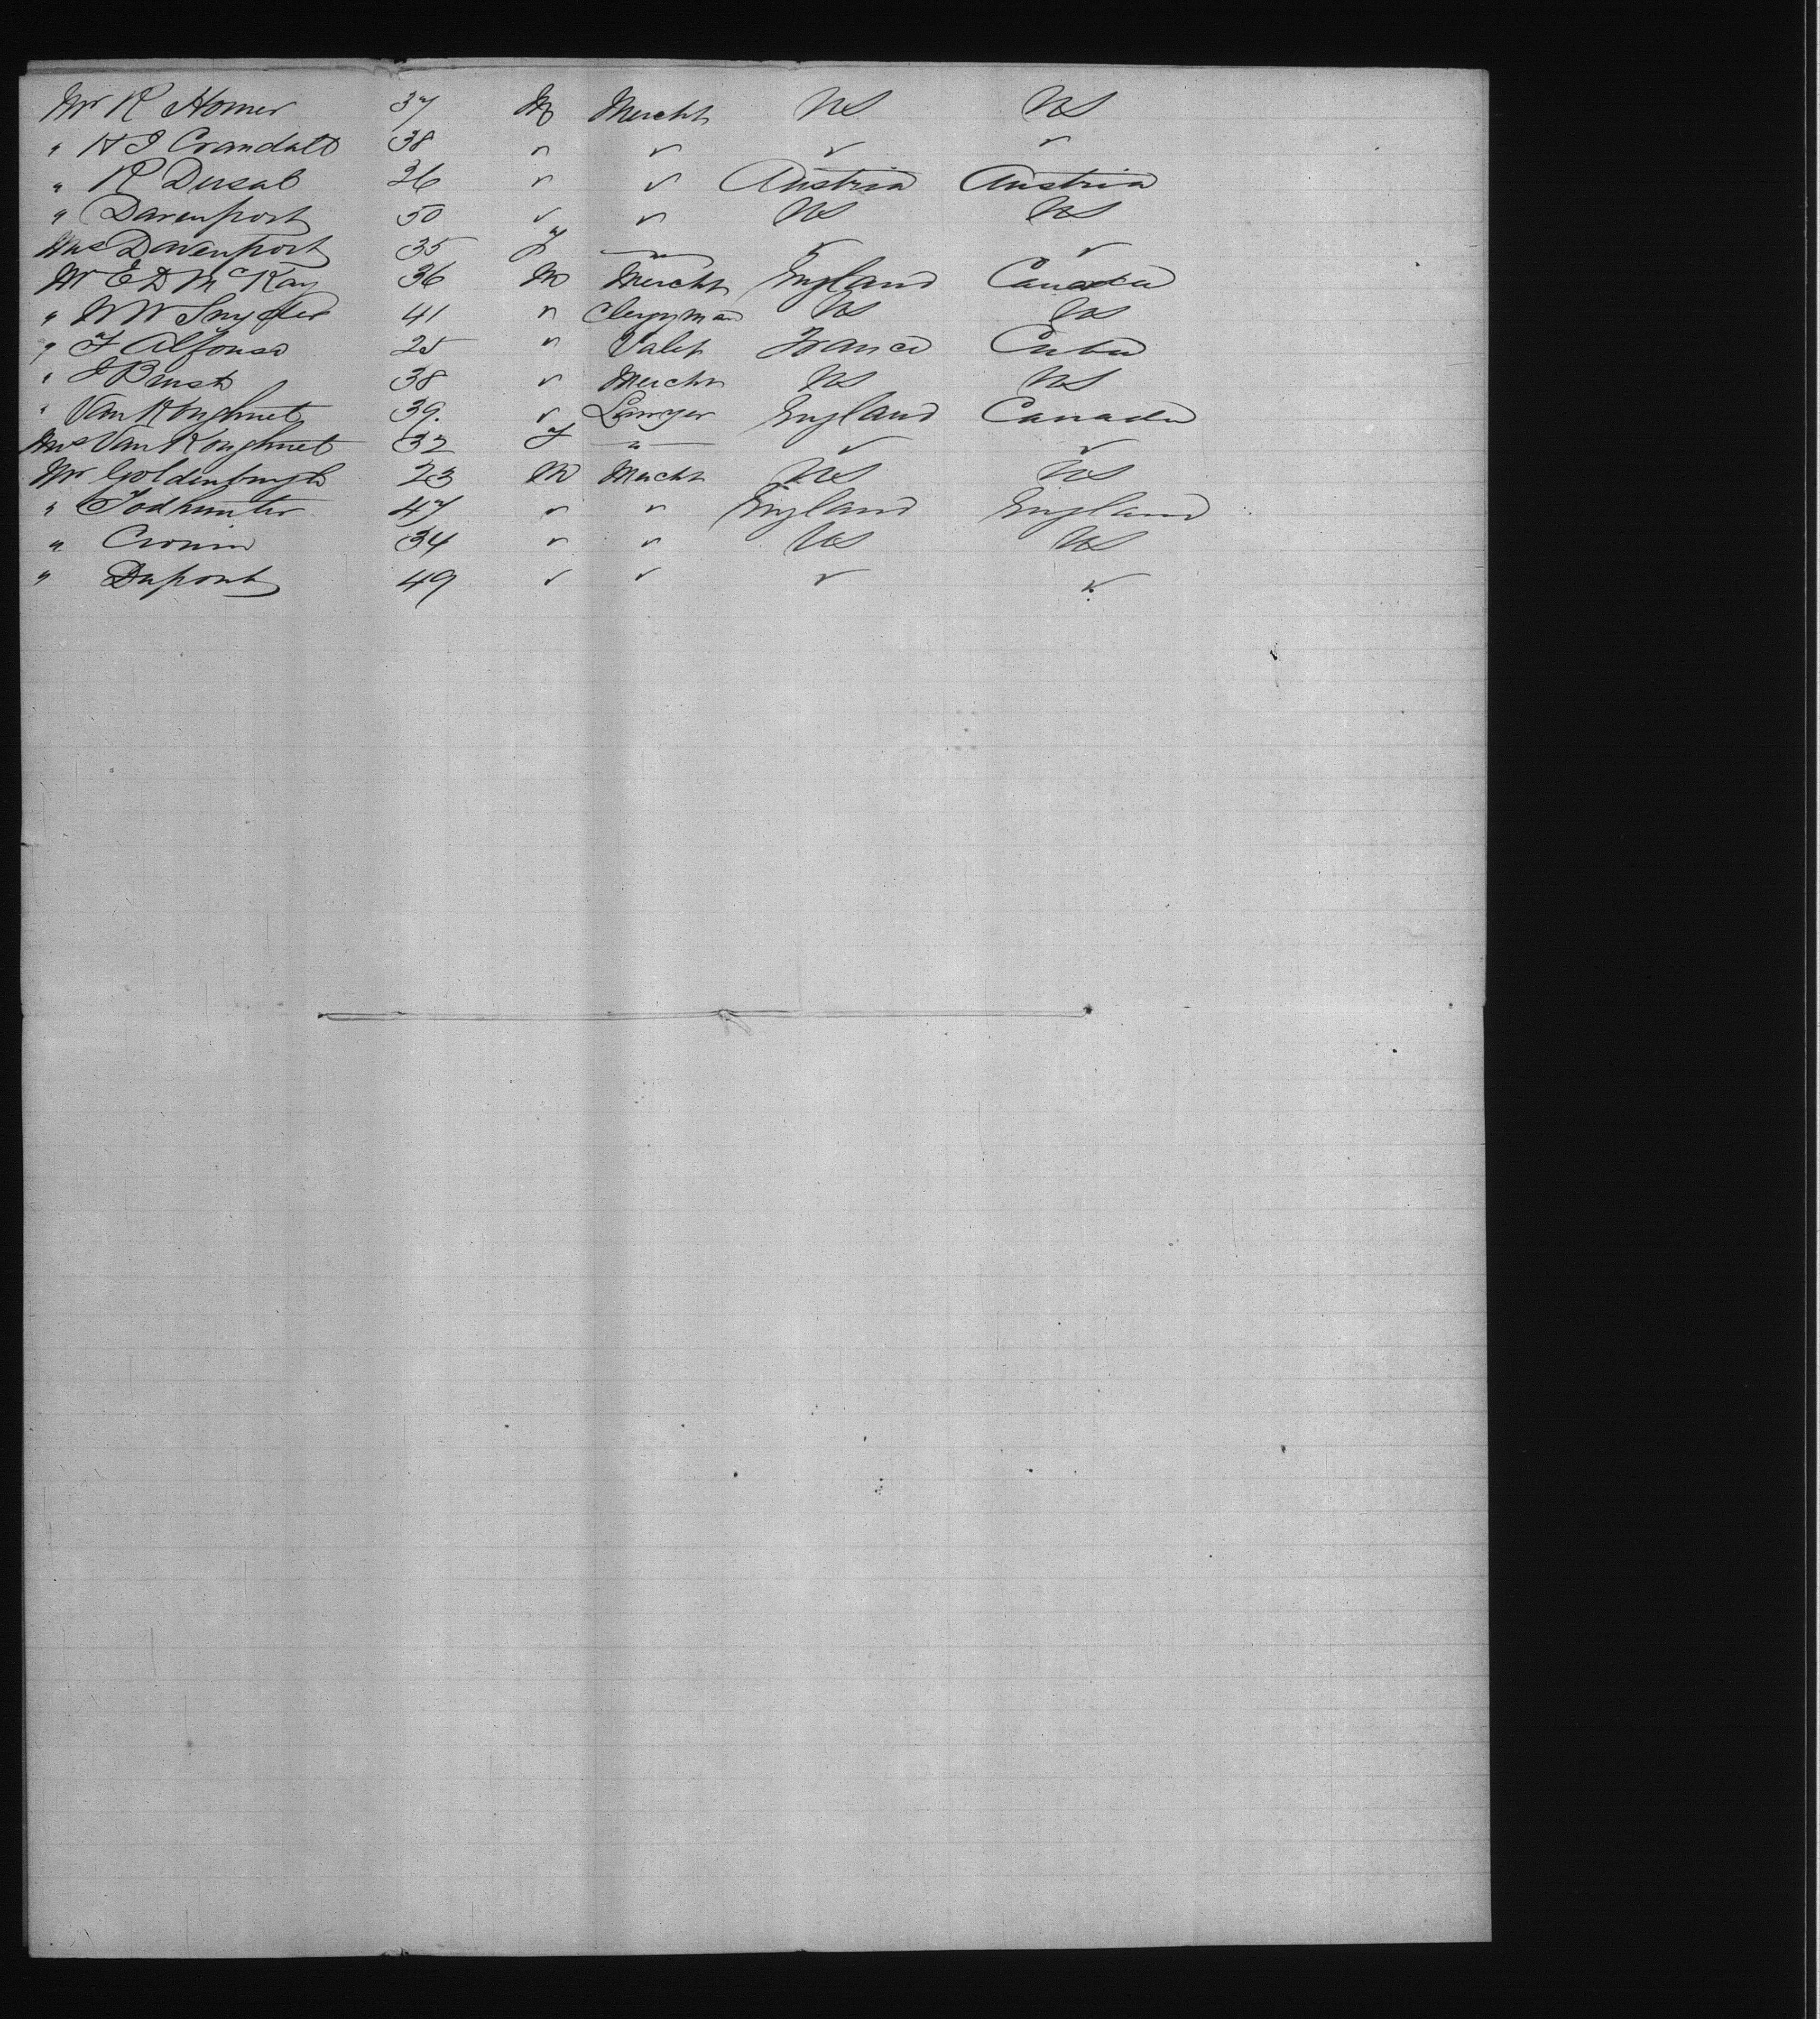 Mr R Homer 37 M Mercht US US
" H J Crandall 38 " " " "
" R Dusab 26 " " Austria Austria
" Davenport 50 " " US US
Mrs Davenport 35 F — " "
Mr E D McKay 36 M Mercht England Canada
" W W Snyder 41 " Clergyman US US
" F Alfonso 25 " Valet France Cuba
" J Brush 38 " Mercht US US
" Van Koughnet 39. " Lawyer England Canada
Mrs Van Koughnet 32 F — " "
Mr Goldenburgh 23 M Mercht US US
" Todhunter 47 " " England England
" Cronin 34 " " US US
" Dupont 49 " " " "